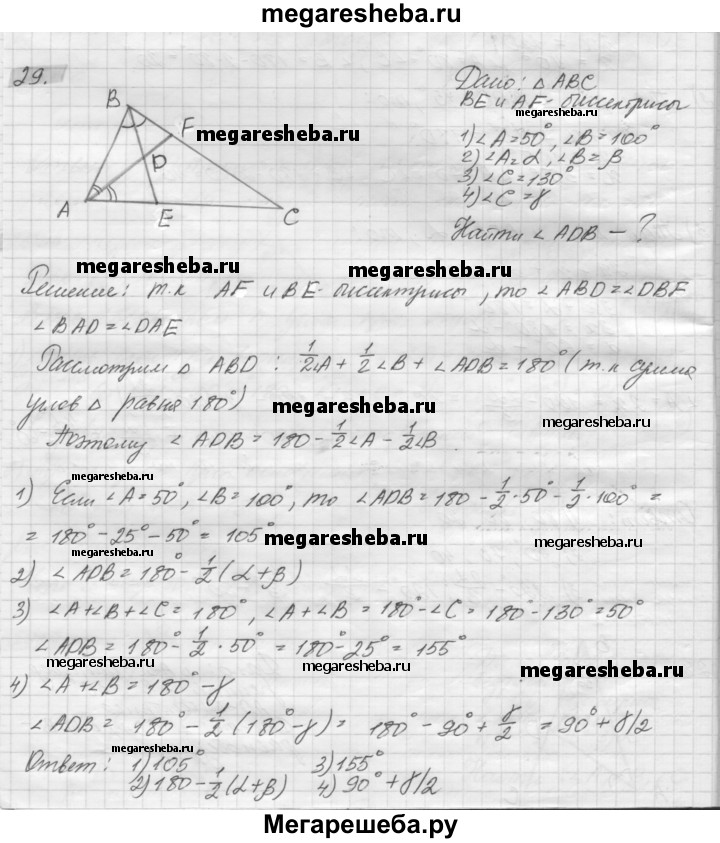 megaresheba.ru
29.
Дано: △ ABC
BE и AF - биссектрисы
1) ∠A = 50°, ∠B = 100°
2) ∠A = α, ∠B = β
3) ∠C = 130°
4) ∠C = γ
Найти ∠ADB - ?
B
F
megaresheba.ru
D
A
E
C
megaresheba.ru
megaresheba.ru
megaresheba.ru
Решение: т.к AF и BE - биссектрисы, то ∠ABD = ∠DBF
∠BAD = ∠DAE
Рассмотрим △ ABD : 1/2∠A + 1/2∠B + ∠ADB = 180° (т.к сумма
углов △ равна 180°)
megaresheba.ru
megaresheba.ru
Поэтому ∠ADB = 180 - 1/2∠A - 1/2∠B
megaresheba.ru
1) Если ∠A = 50°, ∠B = 100°, то ∠ADB = 180 - 1/2·50° - 1/2·100° =
= 180° - 25° - 50° = 105°
megaresheba.ru
megaresheba.ru
megaresheba.ru
2) ∠ADB = 180° - 1/2(α + β)
3) ∠A + ∠B + ∠C = 180°, ∠A + ∠B = 180° - ∠C = 180° - 130° = 50°
∠ADB = 180° - 1/2 · 50° = 180° - 25° = 155°
megaresheba.ru
megaresheba.ru
megaresheba.ru
4) ∠A + ∠B = 180° - γ
∠ADB = 180° - 1/2(180° - γ) = 180° - 90° + γ/2 = 90° + γ/2
megaresheba.ru
megaresheba.ru
Ответ: 1) 105°, 3) 155°
2) 180 - 1/2(α + β) 4) 90° + γ/2
Мегарешеба.ру